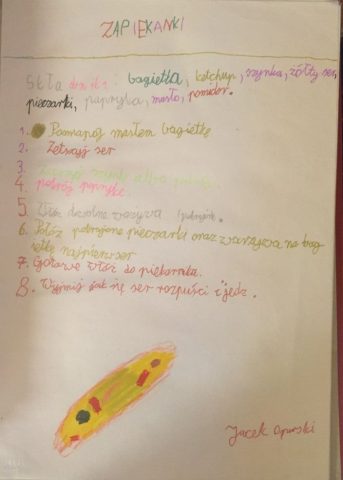 ZAPIEKANKI
Składniki: bagietka, ketchup, szynka, żółty ser,
pieczarki, papryka, masło, pomidor.
1. Posmaruj masłem bagietkę
2. Zetrzyj ser
3.
4. pokrój
5. dowolne warzywa
6. Połóż pokrojone pieczarki oraz warzywa na bag
ietkę najpierw ser
7. Gotowe włóż do piekarnika.
8. Wyjmij jak się ser rozpuści i jedz.
Jacek